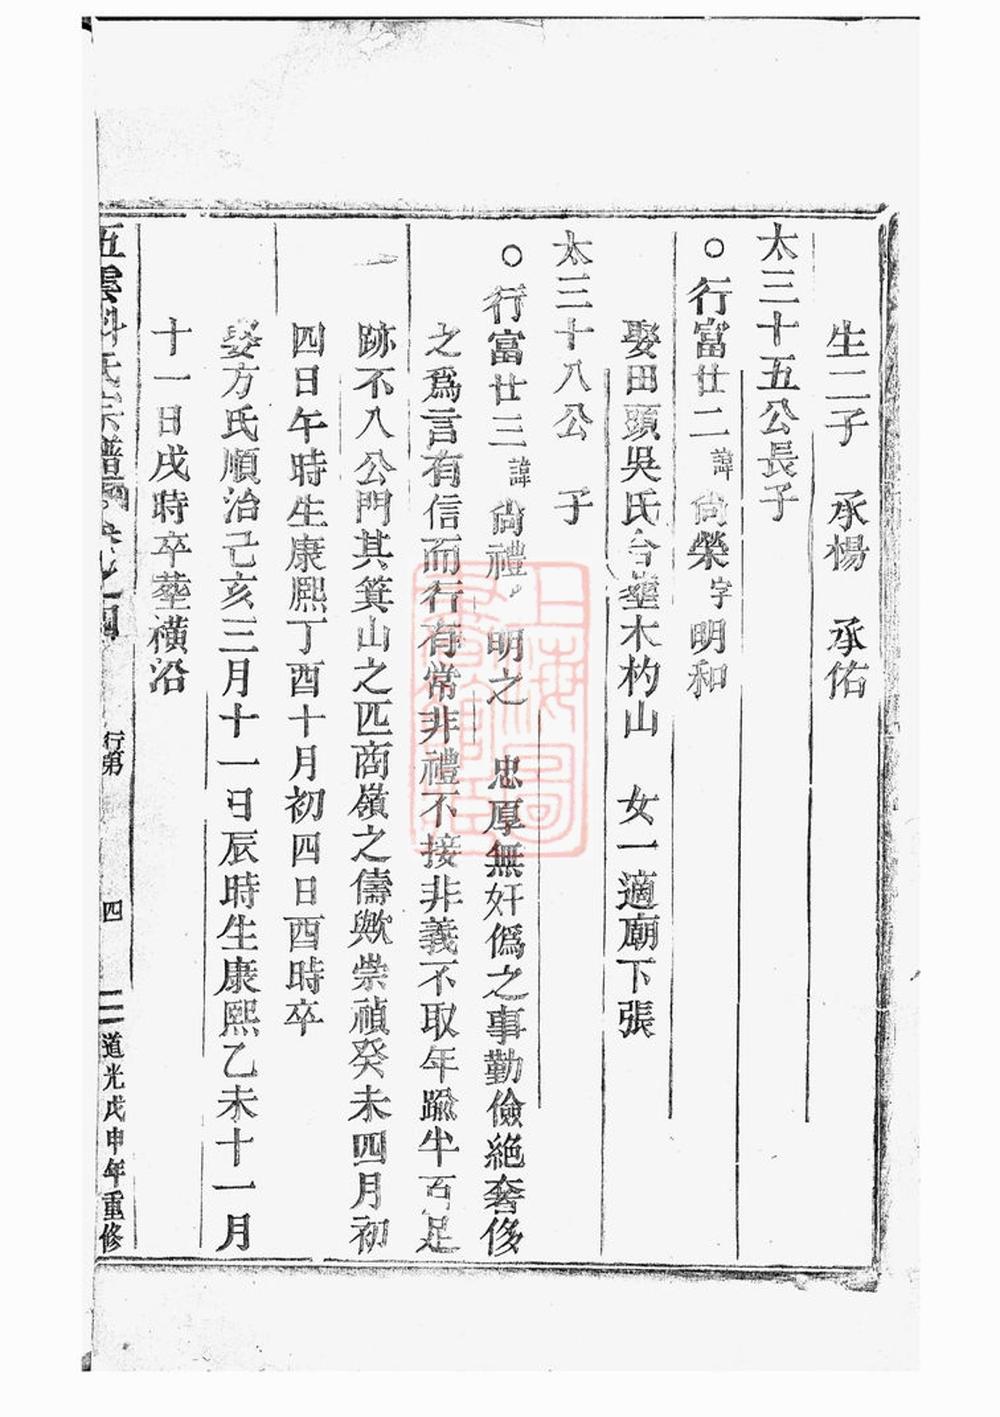 生二子 承楊 承佑
太三十五公長子
○行富廿二諱尙榮字明和
娶田頭吳氏合塟木杓山 女一適廟下張
太三十八公 子
○行富廿三諱尙禮 明之 忠厚無奸僞之事勤儉絶奢侈
之爲言有信而行有常非禮不接非義不取年踰半百足
跡不入公門其箕山之匹商嶺之儔歟崇禎癸未四月初
四日午時生康熙丁酉十月初四日酉時卒
娶方氏順治己亥三月十一日辰時生康熙乙未十一月
十一日戌時卒塟橫沿
五雲 氏宗譜 四 行第 四 道光戊申年重修
上海圖書館藏